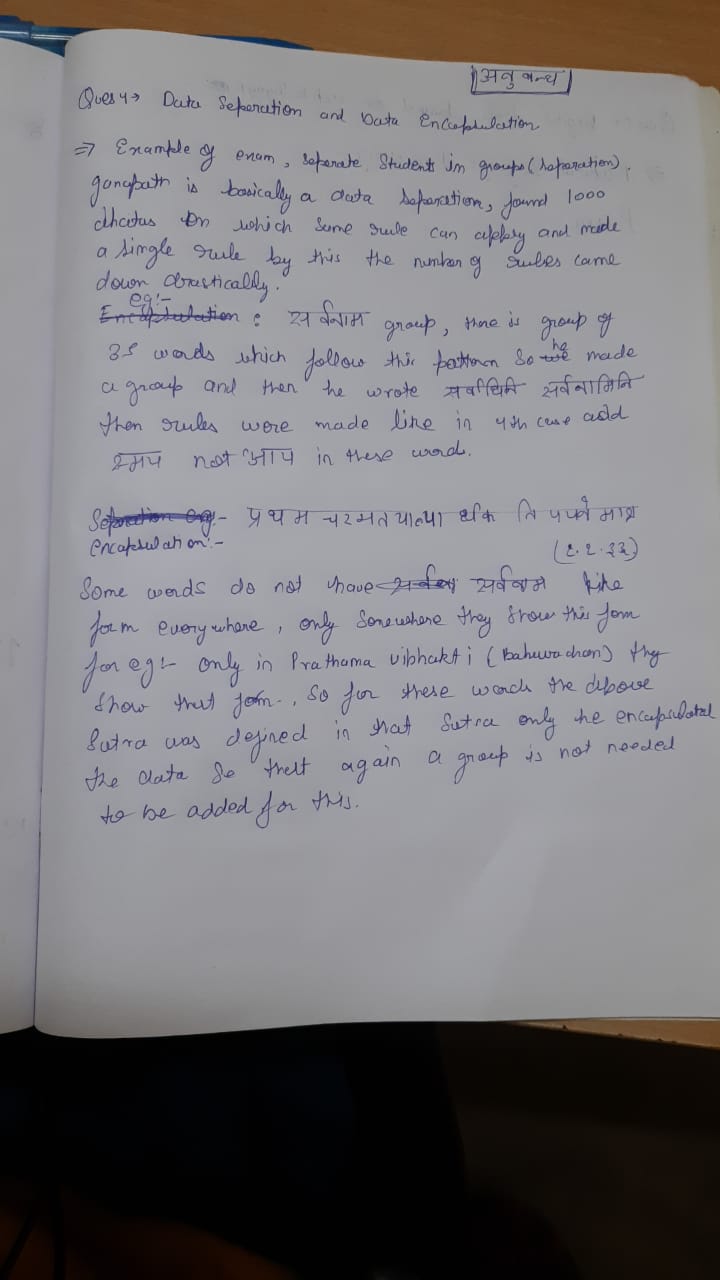 अनुबन्ध
Ques 4→ Data Seperation and Data Encapsulation
⇒ Example of exam, seperate students in groups (seperation).
ganapath is basically a data seperation, found 1000
dhatus on which same rule can apply and made
a single rule by this the number of rules came
down drastically.
eg:-
Encapsulation: सर्वनाम group, there is group of
35 words which follow this pattern so he made
a group and then he wrote सर्वादिनि सर्वनामिनि
then rules were made like in 4th case add
स्मय not आय in these word.
Seperation eg:- प्रथम चरमत याल्पा र्धक ति पपने माश्र
encapsulation:-
(१.१.३३)
Some words do not have सर्वनाम like
form everywhere, only somewhere they show this form
for eg:- only in Prathama vibhakti (Bahuvachan) they
show that form., so for these words the above
Sutra was defined in that Sutra only he encapsulated
the data so that again a group is not needed
to be added for this.